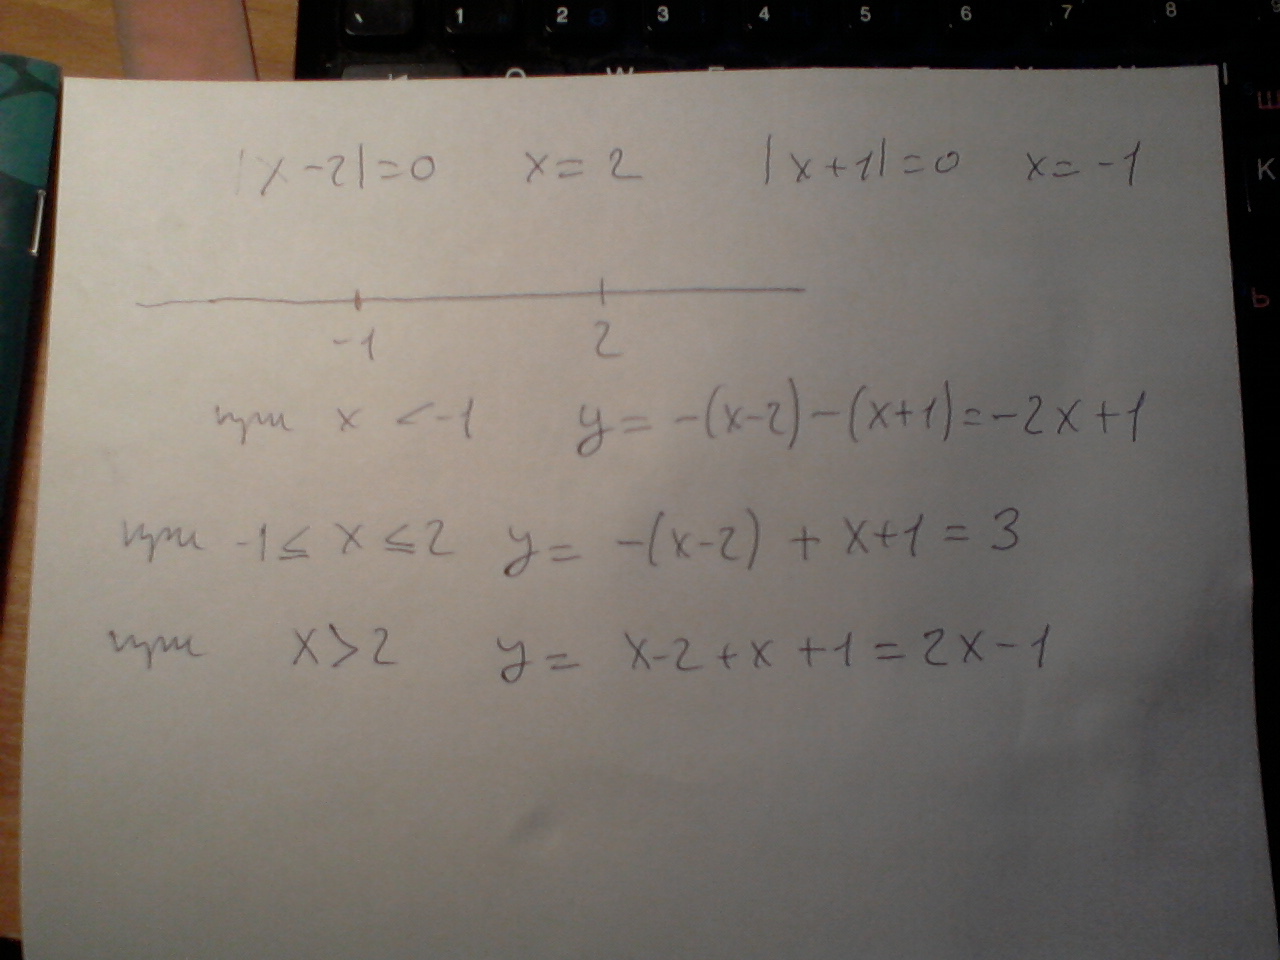 ` 1 2 3 4 5 6 7 8
|x-2|=0 x=2 |x+1|=0 x=-1
-1 2
при x <-1 y=-(x-2)-(x+1)=-2x+1
при -1≤x≤2 y=-(x-2)+x+1=3
при x>2 y=x-2+x+1=2x-1
Ш
K
Ь